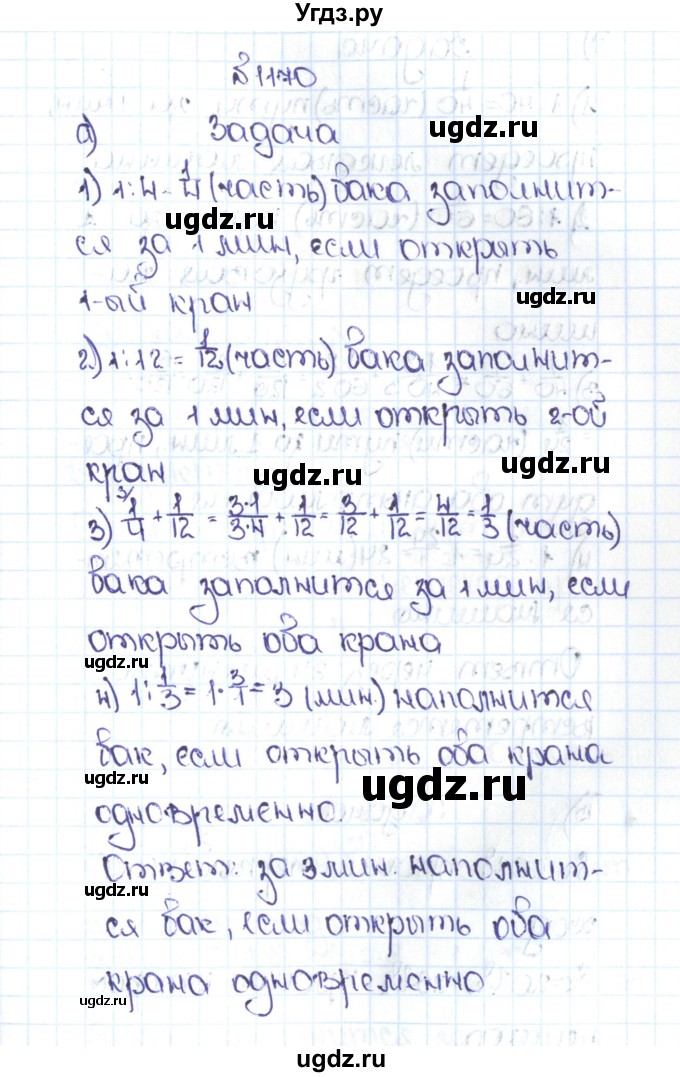 Угдз.ру
№1170
а) Задача
ugdz.ru
1) 1:4 - 1/4 (часть) бака заполнит-
ugdz.ru
ся за 1 мин, если открыть
ugdz.ru
1-ый кран
2.) 1:12 = 1/12 (часть) бака заполнит-
ся за 1 мин, если открыть 2-ой
ugdz.ru
кран
ugdz.ru
3) 3/ 1/4 + 1/12 = 3·1/3·4 + 1/12 = 3/12 + 1/12 = 4/12 = 1/3 (часть)
бака заполнится за 1 мин, если
открыть оба крана
ugdz.ru
4) 1:1/3 = 1·3/1 = 3 (мин.) наполнится
бак, если открыть оба крана
ugdz.ru
ugdz.ru
одновременно.
Ответ: за 3 мин. наполнит-
ugdz.ru
ся бак, если открыть оба
крана одновременно.
ugdz.ru
ugdz.ru